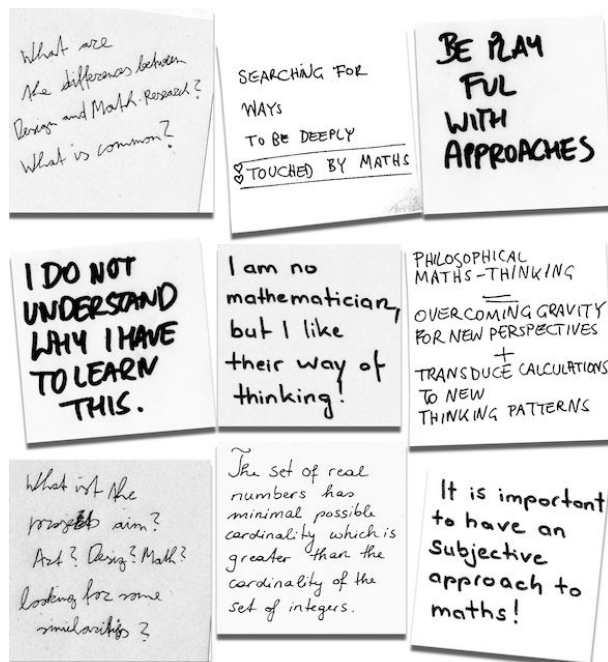 What are
the differences between
Design and Math-Research?
What is common?
SEARCHING FOR
WAYS
TO BE DEEPLY
TOUCHED BY MATHS
BE PLAY
FUL
WITH
APPROACHES
I DO NOT
UNDERSTAND
WHY I HAVE
TO LEARN
THIS.
I am no
mathematician,
but I like
their way of
thinking!
PHILOSOPHICAL
MATHS-THINKING
=
OVERCOMING GRAVITY
FOR NEW PERSPECTIVES
+
TRANSDUCE CALCULATIONS
TO NEW
THINKING PATTERNS
What ist the
projects aim?
Art? Design? Math?
looking for some
similarities?
The set of real
numbers has
minimal possible
cardinality which is
greater than the
cardinality of the
set of integers.
It is important
to have an
Subjective
approach to
maths!